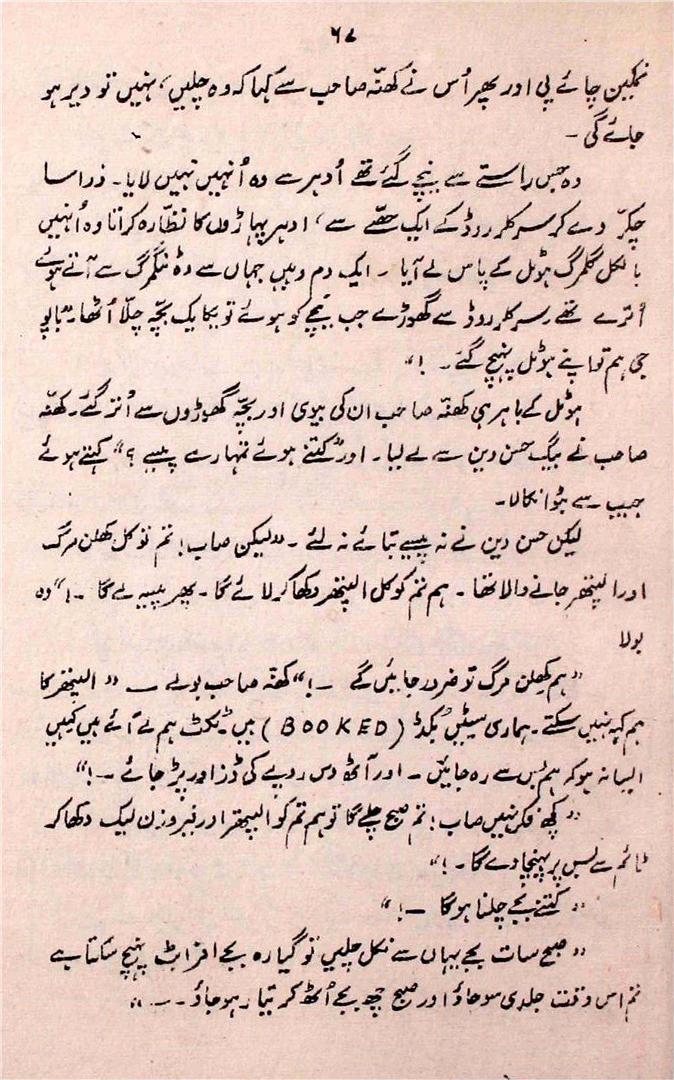 ۶۷
نمکین چائے پی اور پھر اُس نے کھنّہ صاحب سے کہا کہ وہ چلیں، نہیں تو دیر ہو
جائے گی ۔
وہ جس راستے سے نیچے گئے تھے اُدہر سے وہ اُنہیں نہیں لایا ۔ ذرا سا
چکرّ دے کر سرکلر روڈ کے ایک حصّے سے، ادہر پہاڑوں کا نظّارہ کراتا وہ اُنہیں
بالکل گلمرگ ہوٹل کے پاس لے آیا ۔ ایک دم وہیں جہاں سے وہ ٹنگمرگ سے آتے ہوئے
اُترے تھے سرکلر روڈ سے گھوڑے جب نیچے کو ہوئے تو یکایک بچّہ چلّا اُٹھا "بابو
جی ہم تو اپنے ہوٹل پہنچ گئے ۔ !"
ہوٹل کے باہر ہی کھنّہ صاحب ان کی بیوی اور بچّہ گھوڑوں سے اُتر گئے ۔ کھنّہ
صاحب نے بیگ حسن دین سے لے لیا ۔ اور "کتنے ہوئے تمہارے پیسے ؟" کہتے ہوئے
جیب سے بٹوا نکالا ۔
لیکن حسن دین نے نہ پیسے بتائے نہ لئے ۔ "لیکن صاب! تم تو کل کھلن مرگ
اور الپتھر جانے والا تھا ۔ ہم تم کو کل الپتھر دکھا کر لائے گا ۔ پھر پیسہ لے گا ۔ !" وہ
بولا
"ہم کھلن مرگ تو ضرور جائیں گے — !" کھنّہ صاحب بولے — "الپتھر کا
ہم کہہ نہیں سکتے ۔ ہماری سیٹیں بُکڈ (BOOKED) ہیں ۔ ٹکٹ ہم لے آئے ہیں کہیں
ایسا نہ ہو کہ ہم بس سے رہ جائیں ۔ اور آٹھ دس روپے کی ڈز اور پڑ جائے — !"
"کچھ فکر نہیں صاب! تم صبح چلے گا تو ہم تم کو الپتھر اور فیروزن لیک دکھا کر
ٹائم سے بس پر پہنچا دے گا ۔ !"
"کتنے بجے چلنا ہوگا — !"
"صبح سات بجے یہاں سے نکل چلیں تو گیارہ بجے افراٹ پہنچ سکتا ہے
تم اس وقت جلدی سو جاؤ اور صبح چھ بجے اُٹھ کر تیار ہو جاؤ ۔ —"